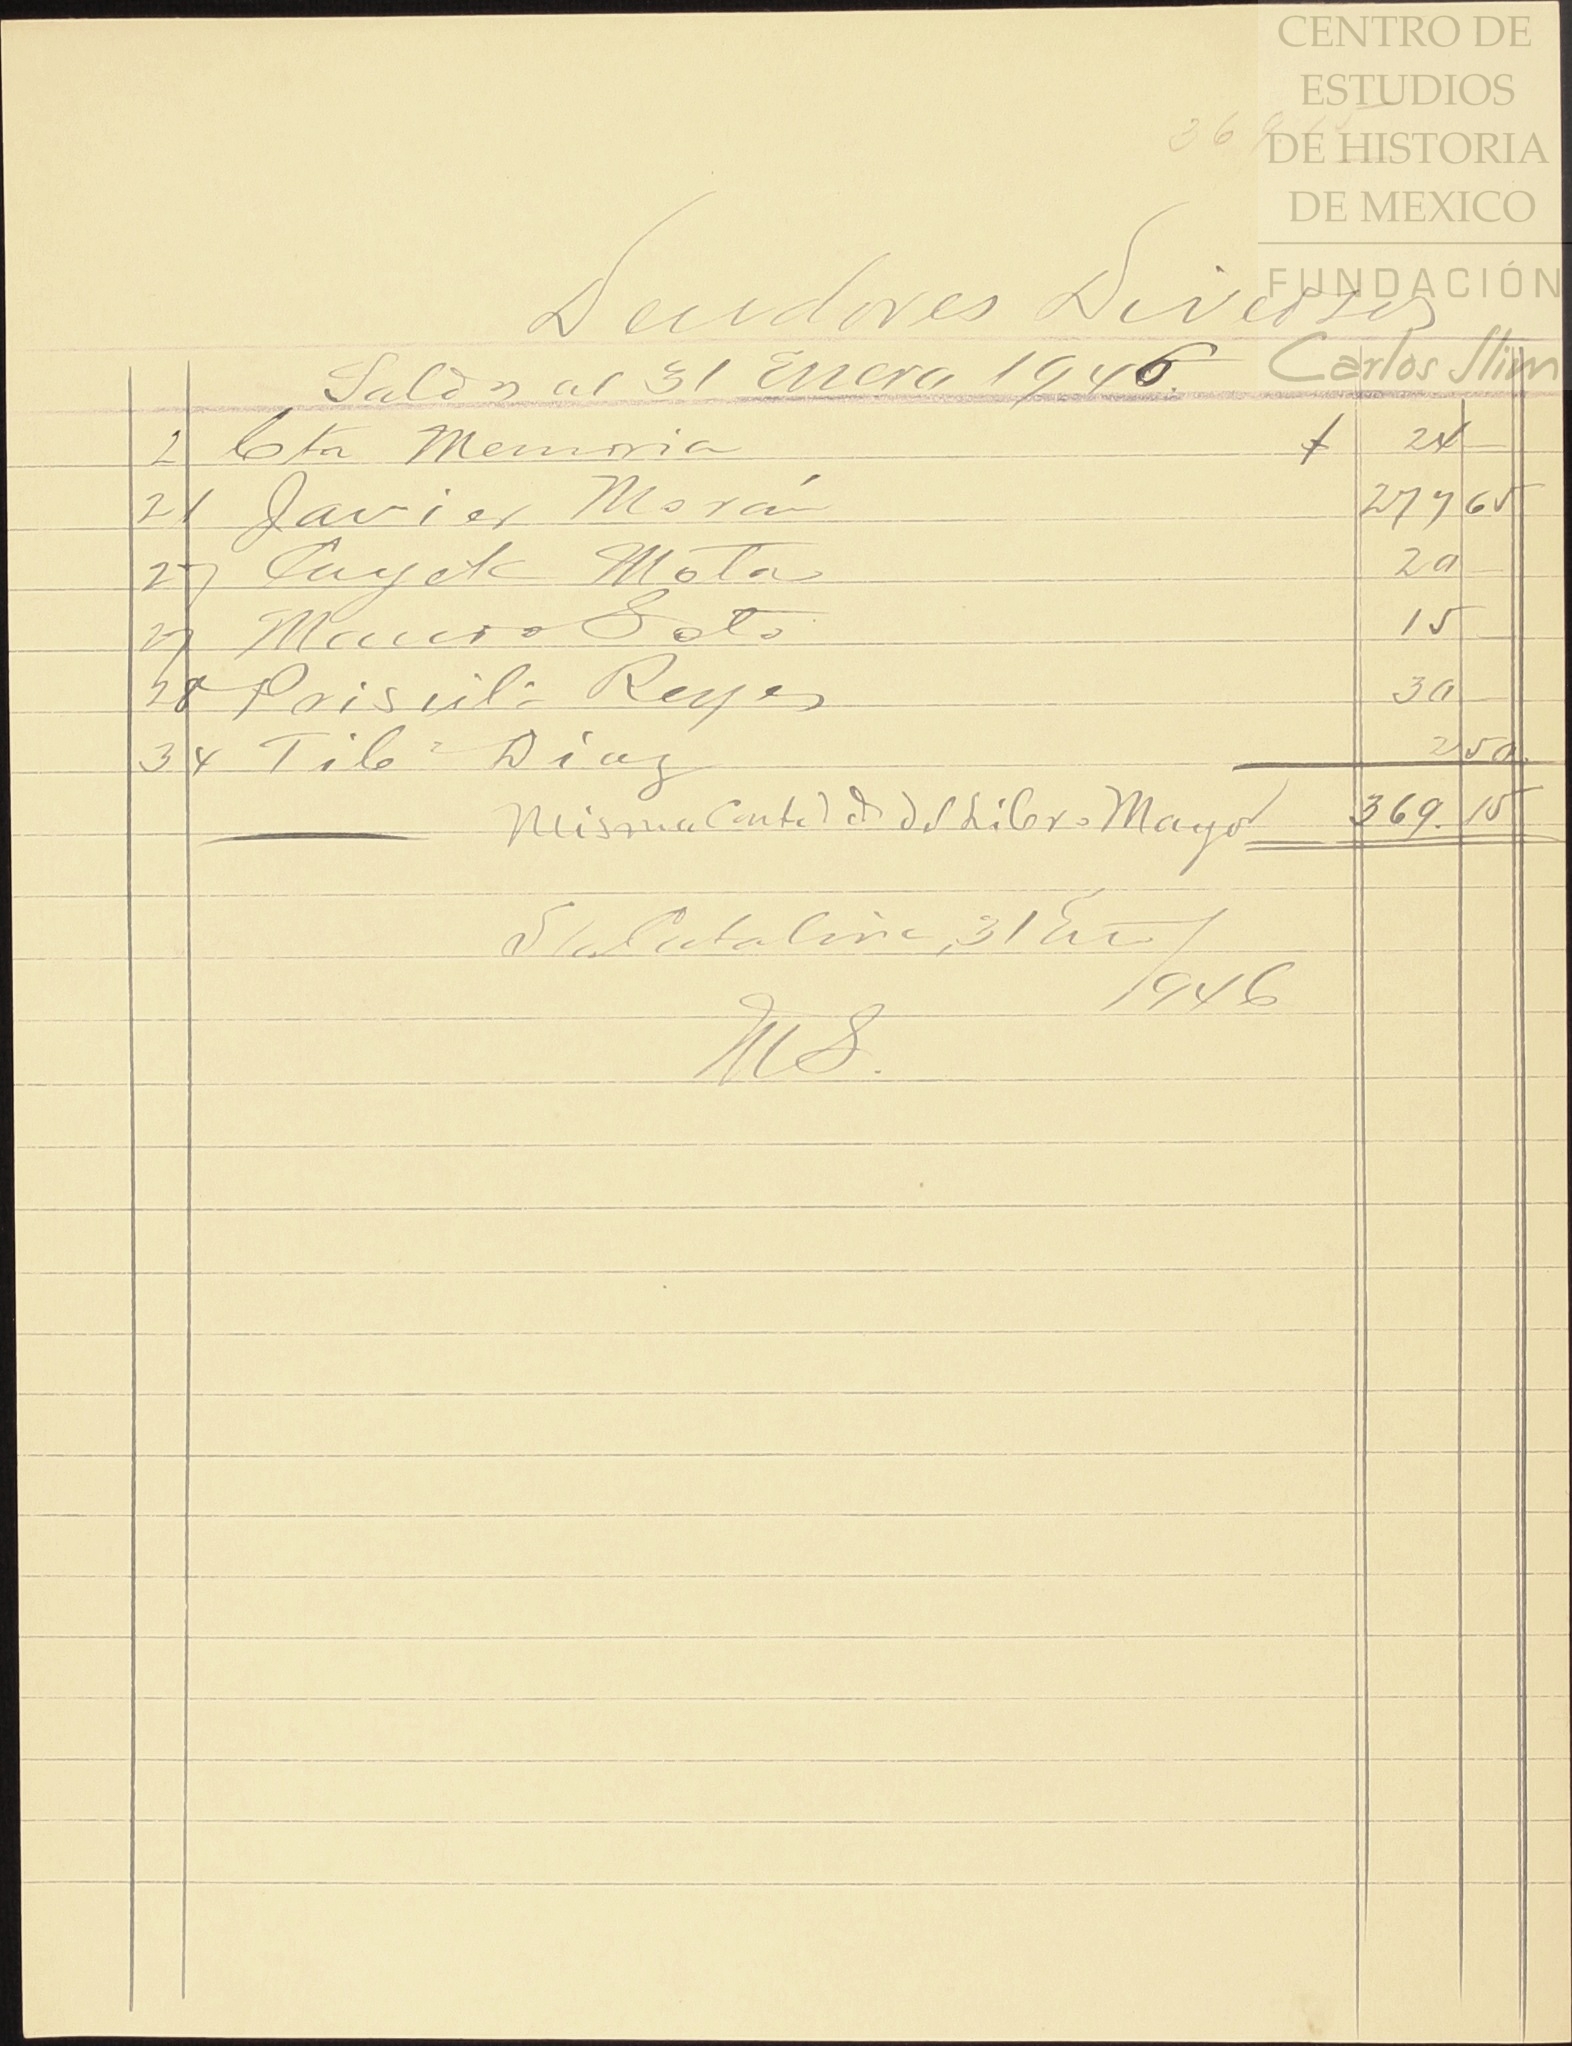 CENTRO DE
ESTUDIOS
DE HISTORIA
DE MEXICO
FUNDACIÓN
Carlos Slim
369.15
Deudores Diversos
Saldos al 31 Enero 1946.
2 Cta Memoria $ 24 —
21 Javier Morán 277 65
27 Mota 20 —
27 Mauro Soto 15 —
28 Reyes 30 —
34 Tibº Diaz 2 50.
Misma Cantidad del Libro Mayor 369. 15
Sta Catalina, 31 Ero/
1946
MS.